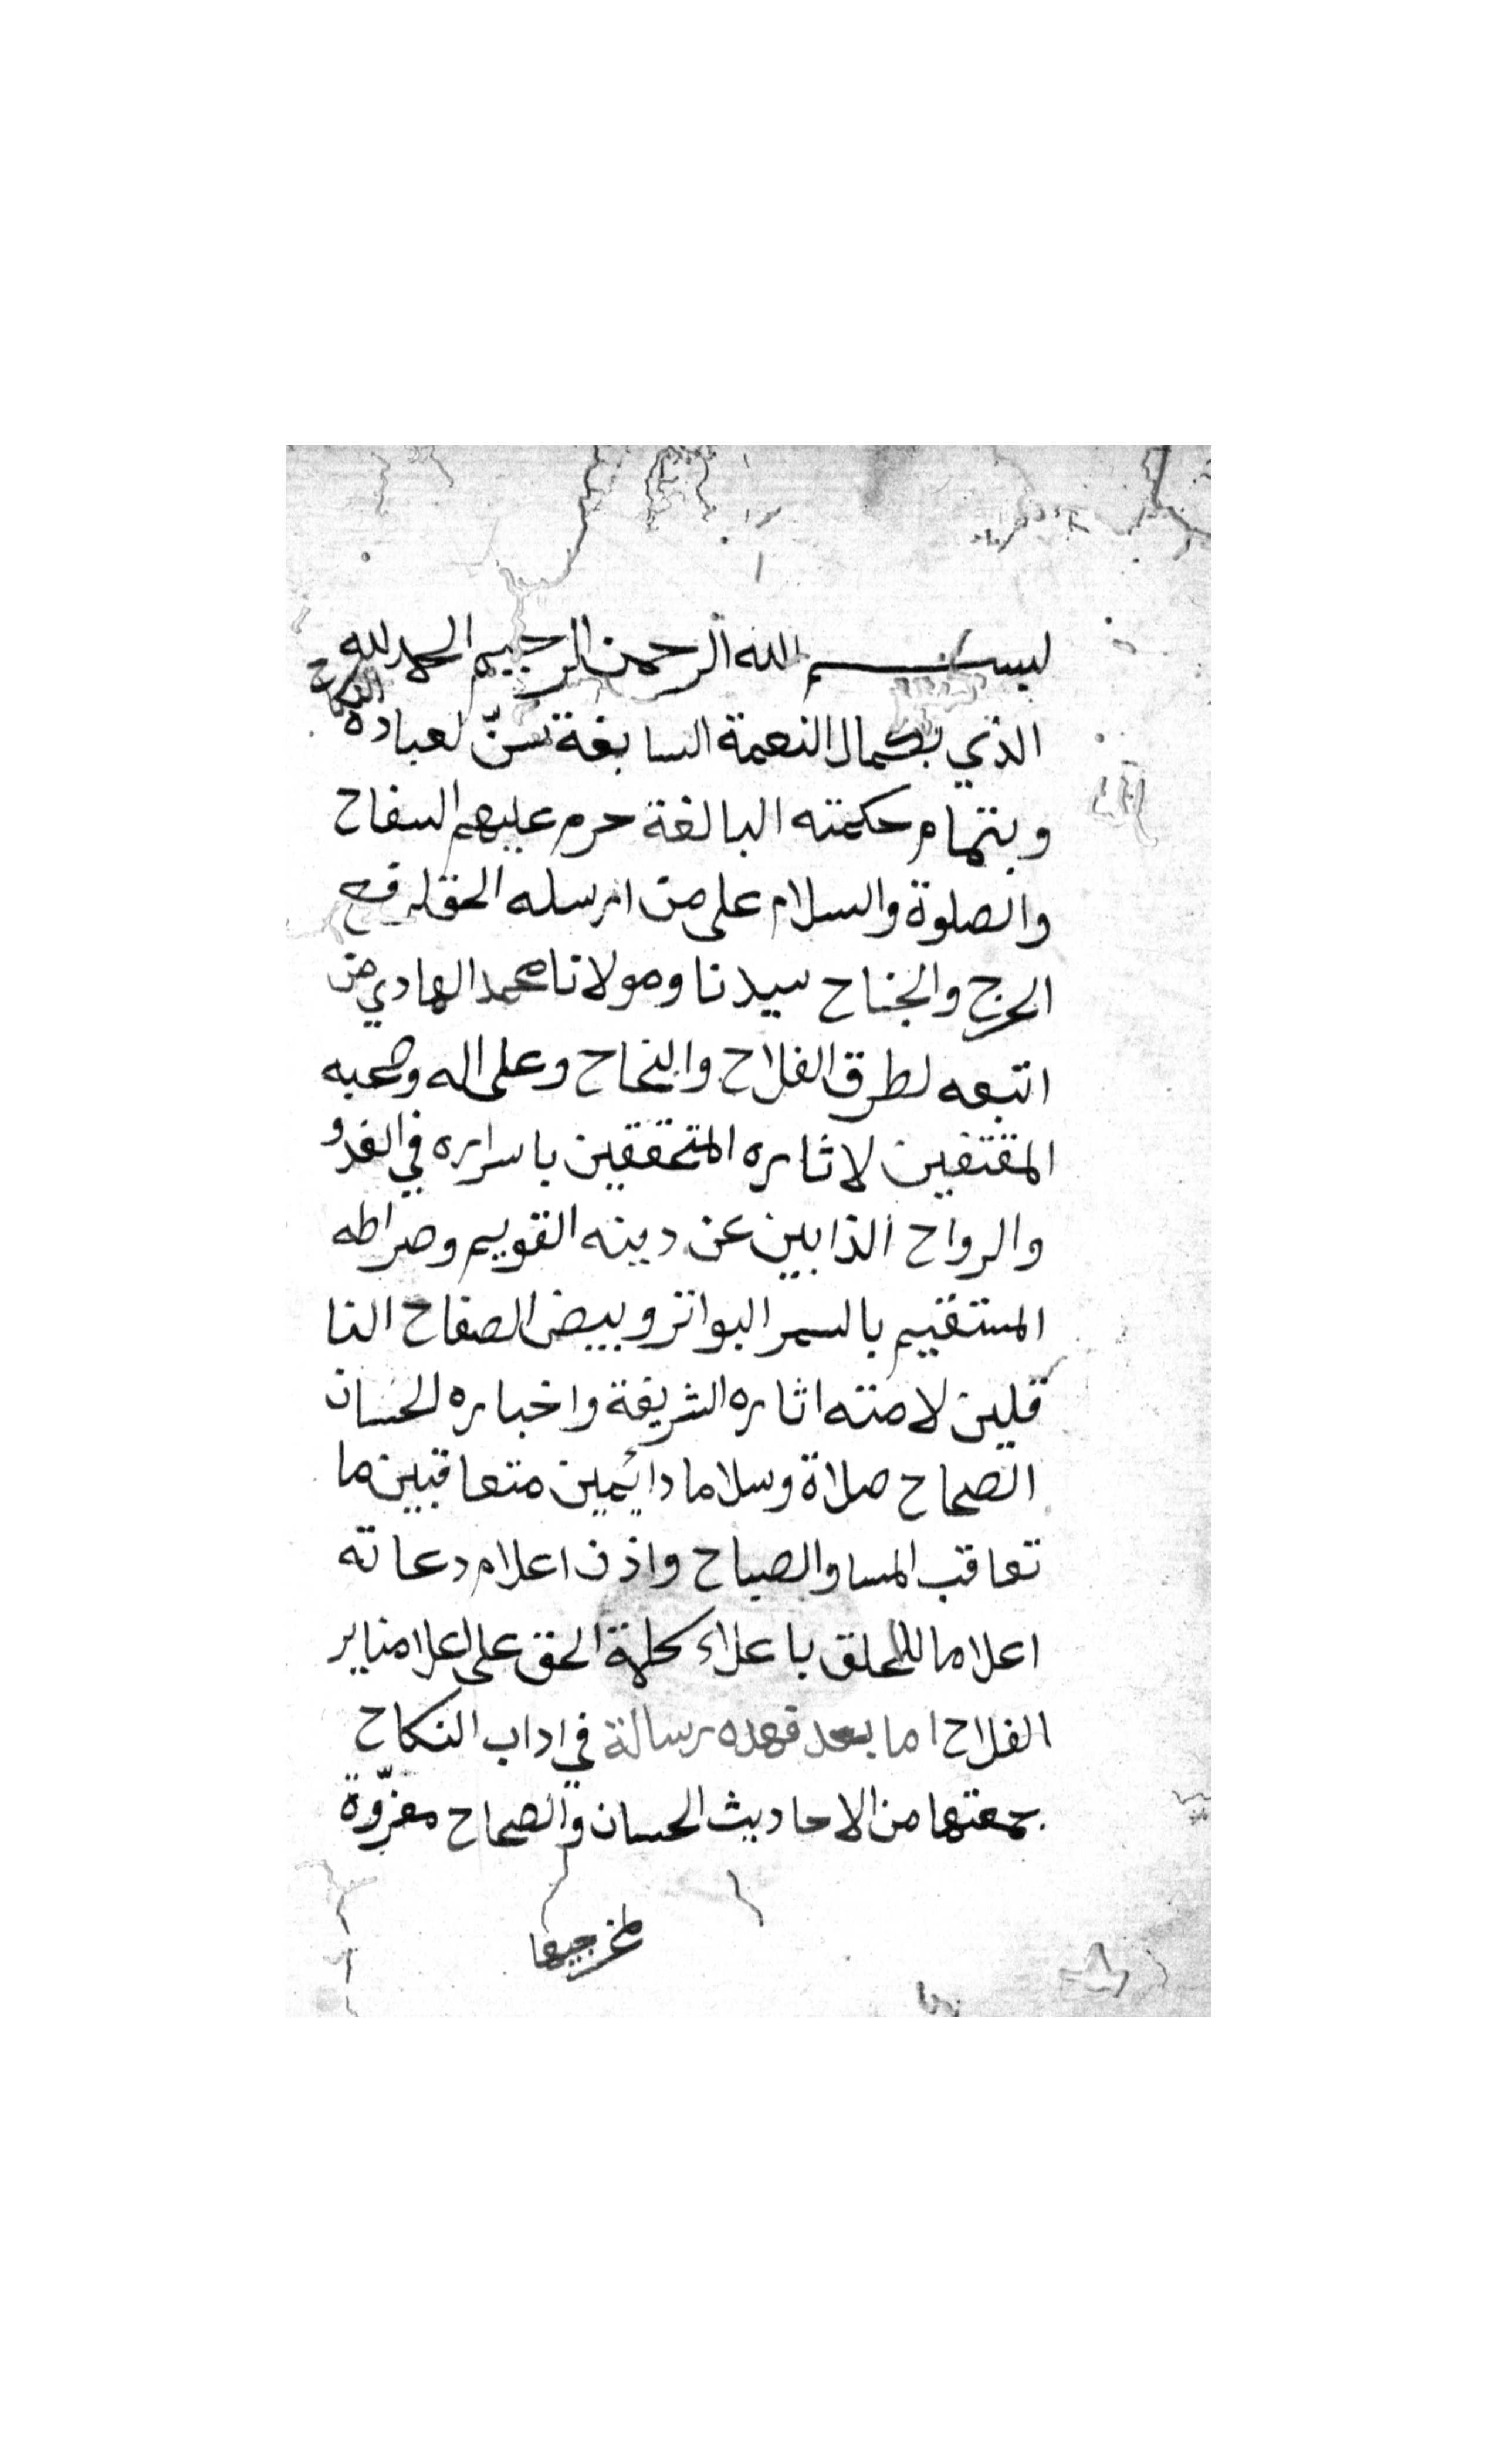 بسم الله الرحمن الرحيم الحمد لله
الذي بكمال النعمة السابغة سنّ لعباده النكاح
وبتمام حكمته البالغة حرم عليهم السفاح
والصلوة والسلام على من ارسله الحق لرفع
الحرج والجناح سيدنا ومولانا محمد الهادي من
اتبعه لطرق الفلاح والنجاح وعلى اله وصحبه
المقتفين لاثاره المتحققين باسراره في الغدو
والرواح الذابين عن دينه القويم وصراطه
المستقيم بالسمر البواتر وبيض الصفاح النا
قلين لامته اثاره الشريفة واخباره الحسان
الصحاح صلاة وسلاما دائمين متعاقبين ما
تعاقب المسا والصباح واذن اعلام دعاته
اعلاما للخلق باعلاء كلمة الحق على اعلا منابر
الفلاح اما بعد فهده رسالة في اداب النكاح
جمعتها من الاحاديث الحسان والصحاح معزوّة
لمخرجيها